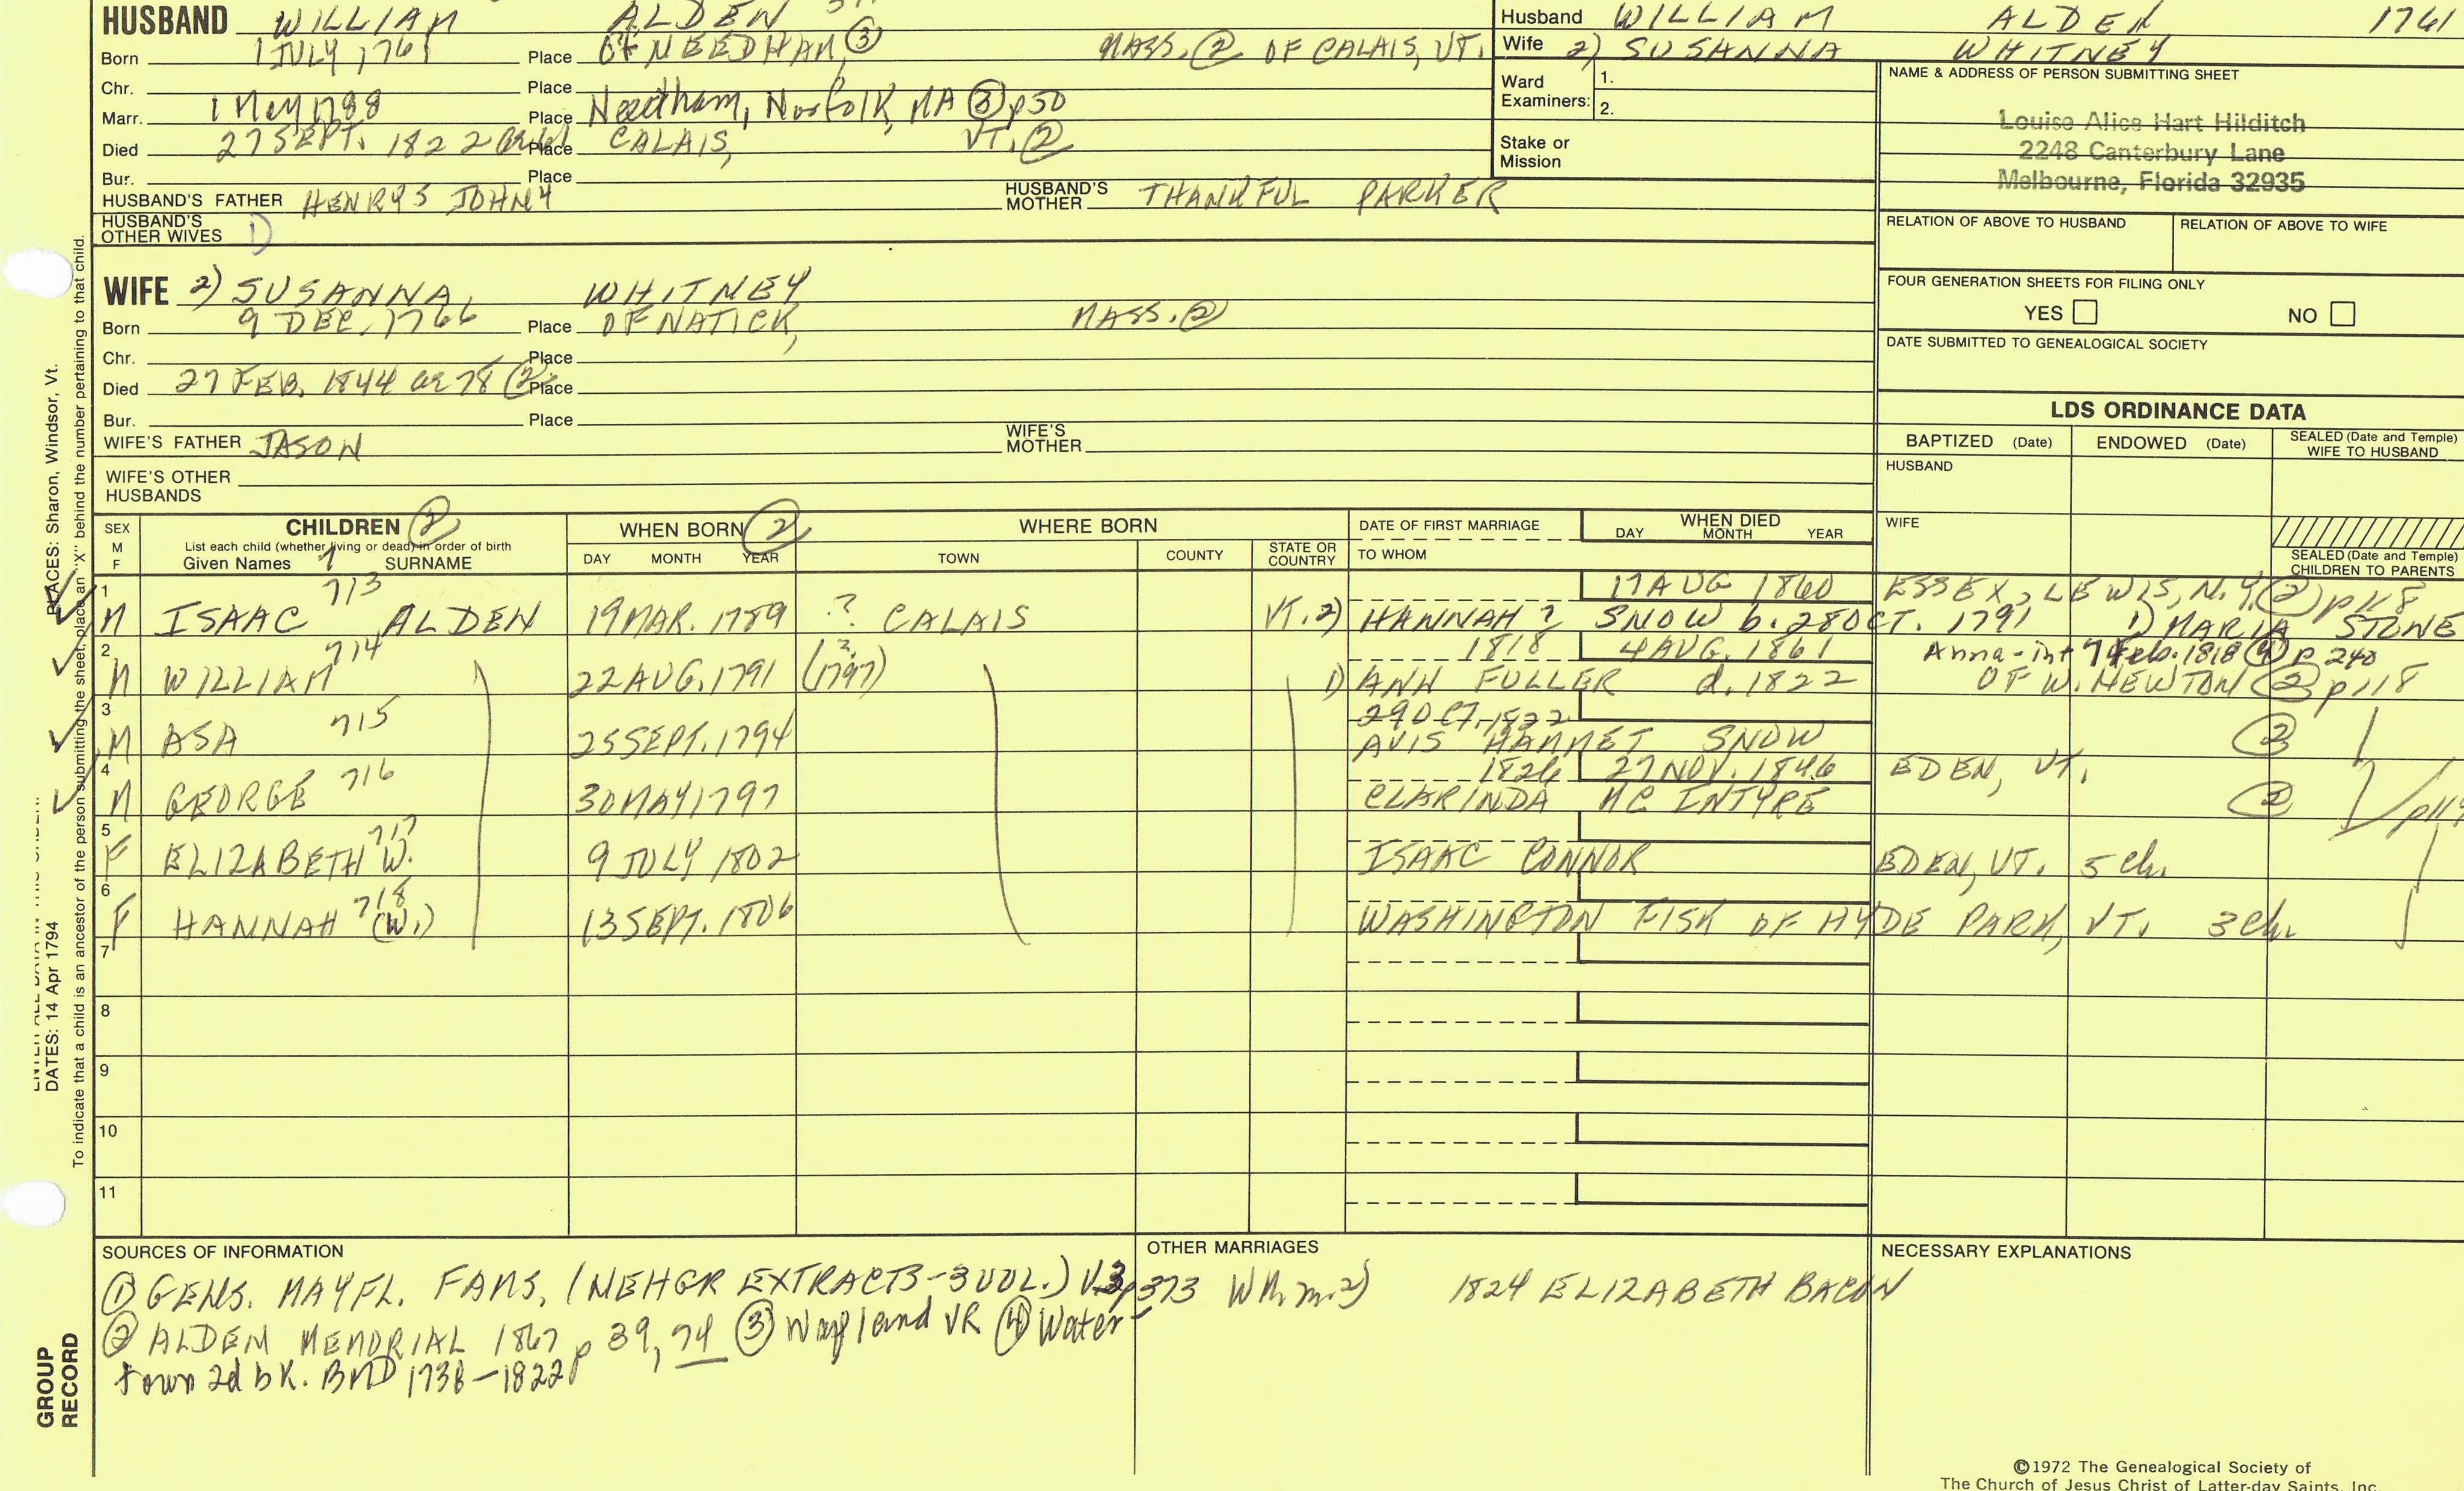 HUSBAND WILLIAM ALDEN
Born 1 JULY 1761 Place OF NEEDHAM, ③ MASS. ② OF CALAIS, VT.
Chr. Place
Marr. 1 May 1788 Place Needham, Norfolk, MA ③ p50
Died 27 SEPT. 1822 Place CALAIS, VT. ②
Bur. Place
HUSBAND'S FATHER HENRY5 JOHN4 HUSBAND'S MOTHER THANKFUL PARKER
HUSBAND'S OTHER WIVES 1)
WIFE 2) SUSANNA, WHITNEY
Born 9 DEC. 1766 Place OF NATICK, MASS. ②
Chr. Place
Died 27 FEB. 1844 ae 78 ② Place
Bur. Place
WIFE'S FATHER JASON WIFE'S MOTHER
WIFE'S OTHER HUSBANDS
Husband WILLIAM ALDEN 1761
Wife 2) SUSANNA WHITNEY
Ward Examiners: 1.
2.
Stake or Mission
NAME & ADDRESS OF PERSON SUBMITTING SHEET
Louise Alice Hart Hilditch
2248 Canterbury Lane
Melbourne, Florida 32935
RELATION OF ABOVE TO HUSBAND RELATION OF ABOVE TO WIFE
FOUR GENERATION SHEETS FOR FILING ONLY
YES NO
DATE SUBMITTED TO GENEALOGICAL SOCIETY
LDS ORDINANCE DATA
BAPTIZED (Date) ENDOWED (Date) SEALED (Date and Temple) WIFE TO HUSBAND
HUSBAND
WIFE
SEALED (Date and Temple) CHILDREN TO PARENTS
SEX M F
CHILDREN ②
List each child (whether living or dead) in order of birth
Given Names 7 SURNAME
WHEN BORN ②
DAY MONTH YEAR
WHERE BORN
TOWN COUNTY STATE OR COUNTRY
DATE OF FIRST MARRIAGE
TO WHOM
WHEN DIED
DAY MONTH YEAR
1 713 17 AUG 1860 ESSEX, LEWIS, N.Y. ② p118
M ISAAC ALDEN 19 MAR. 1789 ? CALAIS VT. 2) HANNAH ? SNOW b. 28 OCT. 1791 1) MARIA STONE
2 714 1818 4 AUG. 1861 Anna-int 7 Feb. 1818 ④ p 240
M WILLIAM 22 AUG. 1791 (1797) ? 1) ANN FULLER d. 1822 OF W. NEWTON ② p118
3 715 29 OCT. 1822
M ASA 25 SEPT. 1794 AVIS HAMMET SNOW ②
4 716 1826 27 NOV. 1846 EDEN, VT.
M GEORGE 30 MAY 1797 CLARINDA MC INTYRE ②
5 717
F ELIZABETH W. 9 JULY 1802 ISAAC CONNOR EDEN, VT. 5 ch.
6 718
F HANNAH (W.) 13 SEPT. 1806 WASHINGTON FISK OF HYDE PARK, VT. 3 ch.
7
8
9
10
11
SOURCES OF INFORMATION
① GENS. MAYFL. FAMS. (NEHGR EXTRACTS-3 VOL.) V3p373
② ALDEN MEMORIAL 1867 p 39, 74 ③ Wayland VR ④ Water-
town 2d bk. BMD 1738-1822
OTHER MARRIAGES
Wm m. 2) 1824 ELIZABETH BACON
NECESSARY EXPLANATIONS
©1972 The Genealogical Society of
The Church of Jesus Christ of Latter-day Saints, Inc.
PLACES: Sharon, Windsor, Vt.
DATES: 14 Apr 1794
To indicate that a child is an ancestor of the person submitting the sheet, place an "X" behind the number pertaining to that child.
GROUP RECORD